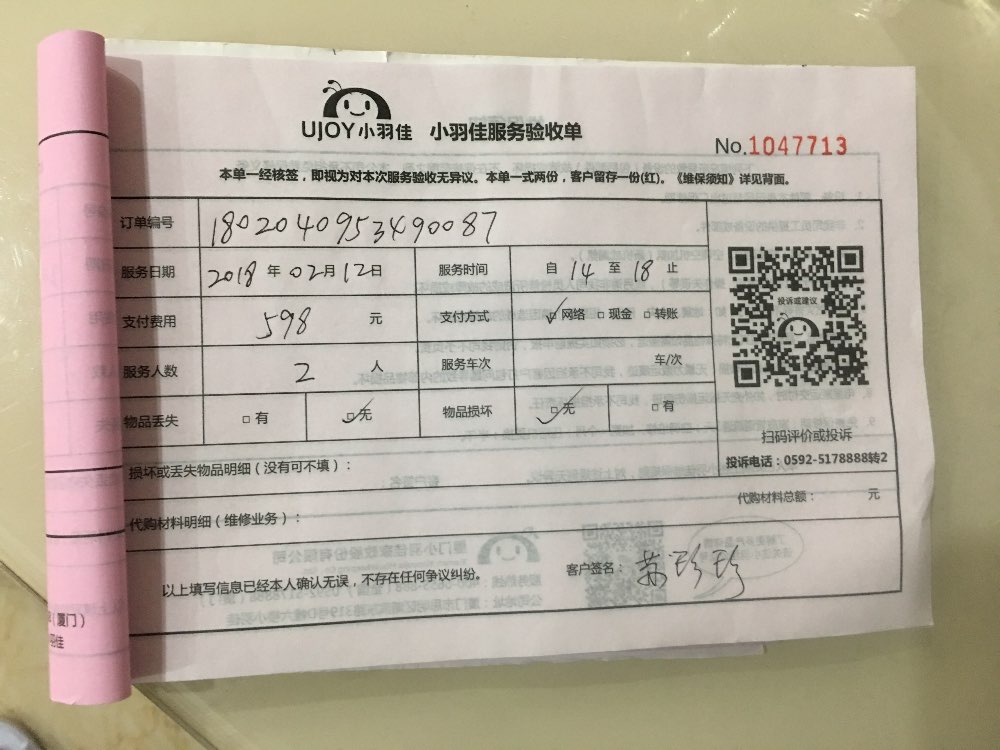 UJOY小羽佳 小羽佳服务验收单
No.1047713
本单一经核签，即视为对本次服务验收无异议。本单一式两份，客户留存一份(红)。《维保须知》详见背面。
订单编号 1802040953490087
服务日期 2018 年 02 月 12 日 服务时间 自 14 至 18 止
支付费用 598 元 支付方式 ☑网络 □现金 □转账
服务人数 2 人 服务车次 车/次
物品丢失 □有 ☑无 物品损坏 ☑无 □有
投诉或建议
扫码评价或投诉
投诉电话：0592-5178888转2
损坏或丢失物品明细（没有可不填）：
代购材料总额： 元
代购材料明细（维修业务）：
以上填写信息已经本人确认无误，不存在任何争议纠纷。
客户签名： 珍珍
（厦门）
羽佳